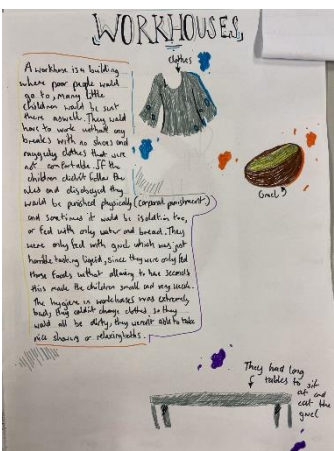 WORKHOUSES
clothes
A workhouse is a building
where poor people would
go to, many little
children would be sent
there aswell. They would
have to work without any
breaks with no shoes and
raggedy clothes that were
not comfortable. If the
children didn't follow the
rules and disobeyed they
would be punished physically (corporal punishment)
and sometimes it would be isolation too,
or fed with only water and bread. They
were only fed with gruel which was just
horrible tasting liquid, since they were only fed
those foods without allowing to have seconds
this made the children small and very weak.
The hygiene in workhouses was extremely
bad, they couldn't change clothes so they
would all be dirty, they weren't able to take
nice showers or relaxing baths.
Gruel
They had long
tables to sit
at and
eat the
gruel